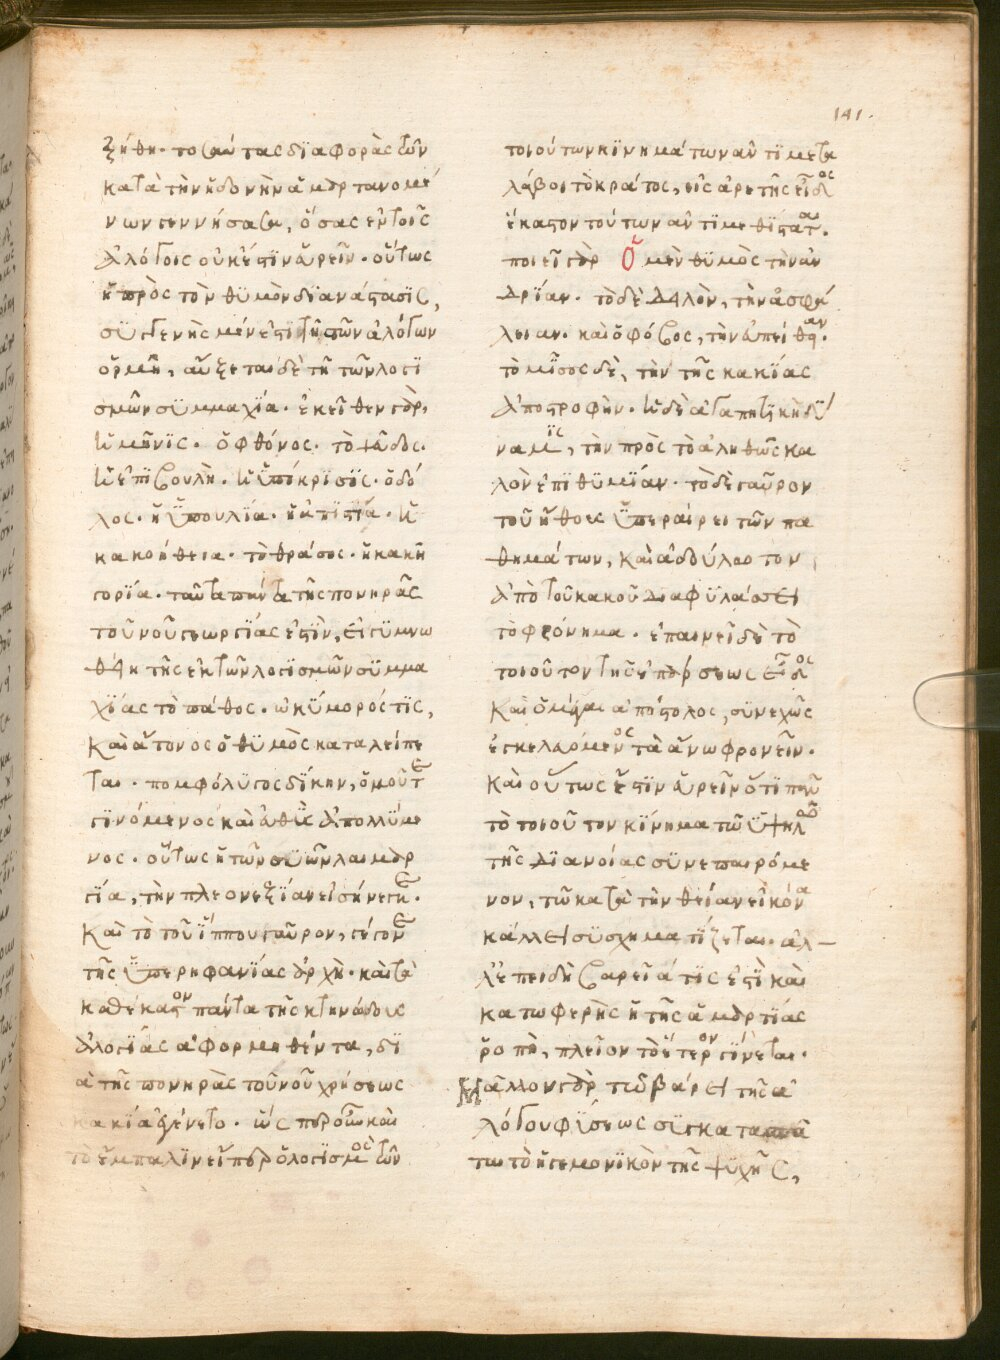 141.
ξήθη· τοσαύτας διαφορὰς τῶν
κατὰ τὴν ἡδονὴν ἁμαρτανομέ
νων γεννήσασα, ὅσας ἐν τοῖς
ἀλόγοις οὐκ ἔστιν εὑρεῖν· οὕτως
ἡ πρὸς τὸν θϋμὸν διανάστασις,
συγγενὴς μέν ἐστι τῇ τῶν ἀλόγων
ὁρμῆ, αὔξεται δὲ τῆ τῶν λογι
σμῶν συμμαχία· ἐκεῖθεν γὰρ,
ἡ μῆνις· ὁ φθόνος· τὸ ψεῦδος·
ἡ ἐπιβουλὴ· ἡ ὑπόκρισις· ὁ δό
λος· ἡ ὑπουλία· ἡ ἀπιστία· ἡ
κακοήθεια· τὸ θράσος· ἡ κακη
γορία· ταῦτα πάντα τῆς πονηρᾶς
τοῦ νοῦ γεωργίας ἐστὶν, εἰ γυμνω
θείη τῆς ἐκ τῶν λογισμῶν συμμα
χίας τὸ πάθος· ὠκύμορός τις,
καὶ ἄτονος ὁ θυμὸς καταλείπε
ται· πομφόλυγος δίκην, ὁμοῦ τε
γινόμενος καὶ εὐθὺς ἀπολλύμε
νος· οὕτως ἡ τῶν συῶν λαιμαρ
γία, τὴν πλεονεξίαν εἰσήνεγκε·
καὶ τὸ τοῦ ἵππου γαῦρον, γέγονε
τῆς ὑπερηφανίας ἀρχὴ· καὶ τὰ
καθέκαστον πάντα τῆς κτηνώδους
ἀλογίας ἀφορμηθέντα, δι
ὰ τῆς πονηρᾶς τοῦ νοῦ χρήσεως
κακία ἐγένετο· ὥσπερ οὖν καὶ
τὸ ἔμπαλιν εἴπερ ὁ λογισμὸς τῶν
τοιούτων κινημάτων ἀντιμετα
λάβοι τὸ κράτος, εἰς ἀρετῆς εἶδος
ἕκαστον τούτων ἀντιμεθίσταται·
ποιεῖ γὰρ Ὁ μὲν θυμὸς τὴν ἀν
δρίαν· τὸ δὲ δειλὸν, τὴν ἀσφά
λειαν· καὶ ὁ φόβος, τὴν εὐπείθειαν·
τὸ μῖσος δὲ, τὴν τῆς κακίας
ἀποστροφήν· ἡ δὲ ἀγαπητικὴ δύ
ναμις, τὴν πρὸς τὸ ἀληθῶς κα
λὸν ἐπιθυμίαν· τὸ δὲ γαῦρον
τοῦ ἤθους ὑπεραίρει τῶν πα
θημάτων, καὶ ἀδούλωτον
ἀπὸ τοῦ κακοῦ διαφυλάσσει
τὸ φρόνημα· ἐπαινεῖ δὲ τὸ
τοιοῦτον τῆς ἐπάρσεως εἶδος
καὶ ὁ μέγας ἀπόστολος, συνεχῶς
ἐγκελευόμενος τὰ ἄνω φρονεῖν·
καὶ οὕτως ἔστιν εὑρεῖν ὅτι πᾶν
τὸ τοιοῦτον κίνημα τῶ ὑψηλῶ
τῆς διανοίας συνεπαιρόμε
νον, τῶ κατὰ τὴν θείαν εἰκόνα
κάλλει συσχηματίζεται· ἀλ-
λ' ἐπειδὴ βαρεῖά τις ἐστὶ καὶ
κατωφερὴς ἡ τῆς ἁμαρτίας
ῥοπὴ, πλεῖον τὸ ἕτερον γίνεται·
Μᾶλλον γὰρ τῶ βάρει τῆς ἀ
λόγου φύσεως συγκατασπᾶ
τω τὸ ἡγεμονικὸν τῆς ψυχῆς,